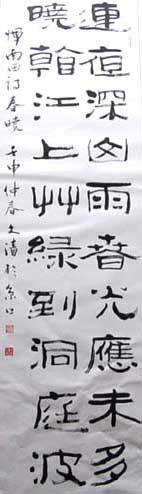 連夜深囱雨春光應未多
曉看江上艸綠到洞庭波
惲南田詩春曉 壬申仲春文於京口